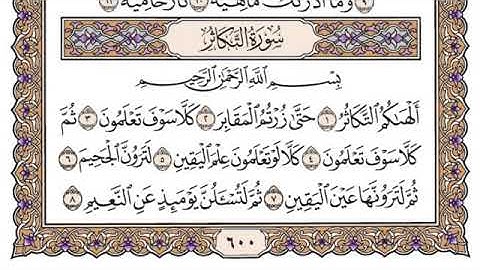 ٩ وَمَا أَدْرَىٰكَ مَا هِيَهْ ١٠ نَارٌ حَامِيَةٌ ١١
سُورَةُ التَّكَاثُرِ
بِسْمِ اللَّهِ الرَّحْمَٰنِ الرَّحِيمِ
أَلْهَىٰكُمُ التَّكَاثُرُ ١ حَتَّىٰ زُرْتُمُ الْمَقَابِرَ ٢ كَلَّا سَوْفَ تَعْلَمُونَ ٣ ثُمَّ
كَلَّا سَوْفَ تَعْلَمُونَ ٤ كَلَّا لَوْ تَعْلَمُونَ عِلْمَ الْيَقِينِ ٥ لَتَرَوُنَّ الْجَحِيمَ ٦
ثُمَّ لَتَرَوُنَّهَا عَيْنَ الْيَقِينِ ٧ ثُمَّ لَتُسْـَٔلُنَّ يَوْمَئِذٍ عَنِ النَّعِيمِ ٨
٦٠٠